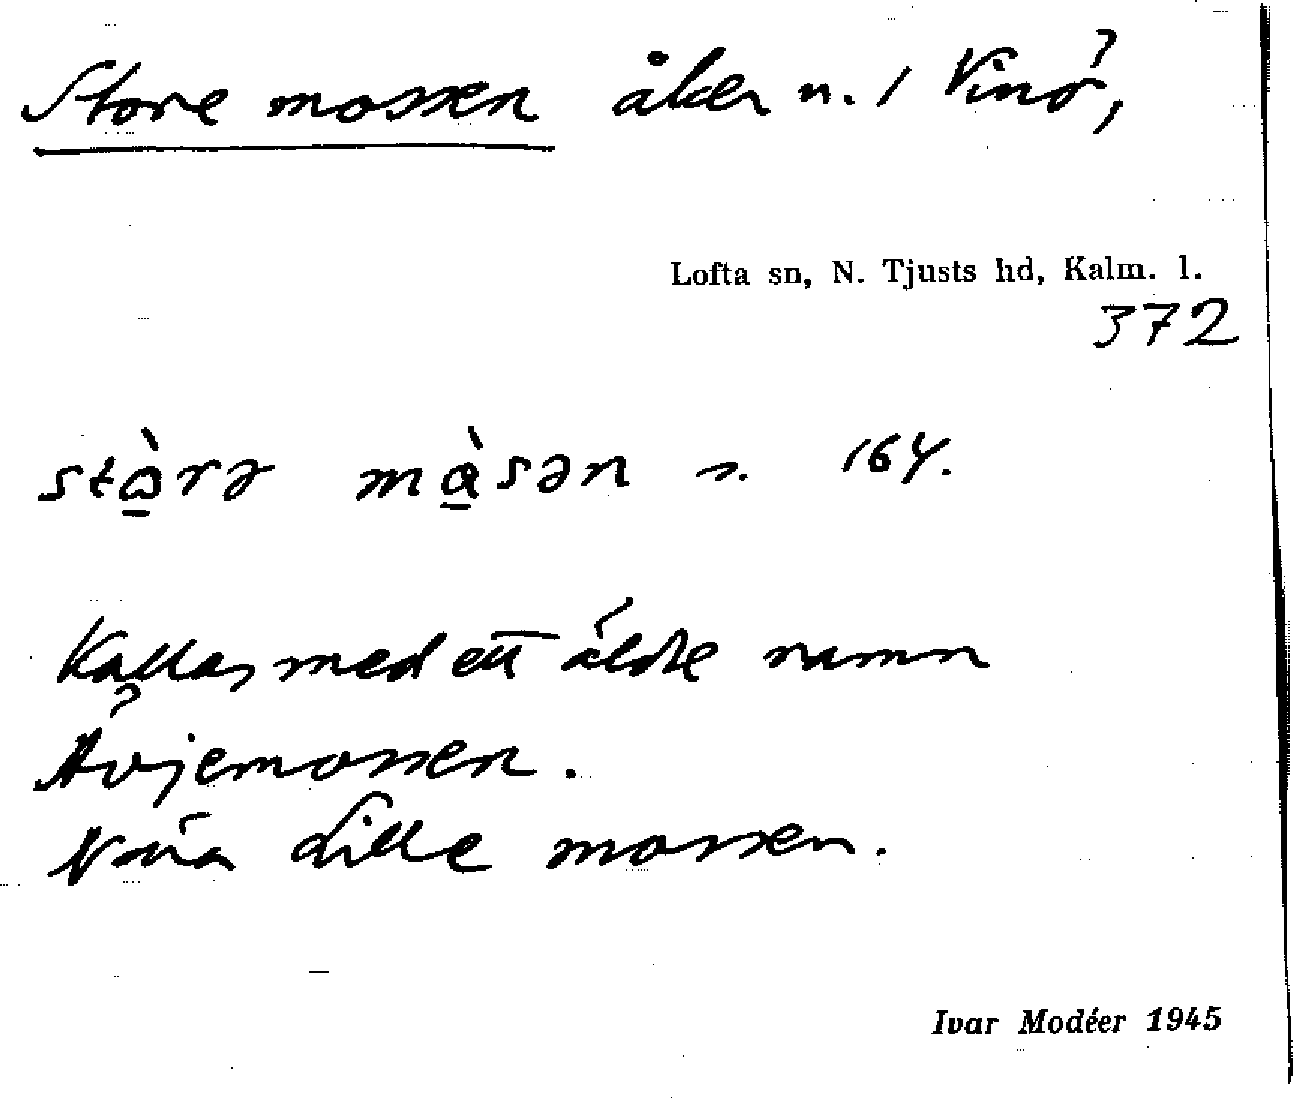 Store mossen åker n. 1 Vinö,
Lofta sn, N. Tjusts hd, Kalm. l.
372
stɷ̠̀rə mɑ̠̀sən s. 164.
Kallas med ett äldre namn
Åvjemossen.
Nära Lille mossen.
Ivar Modéer 1945